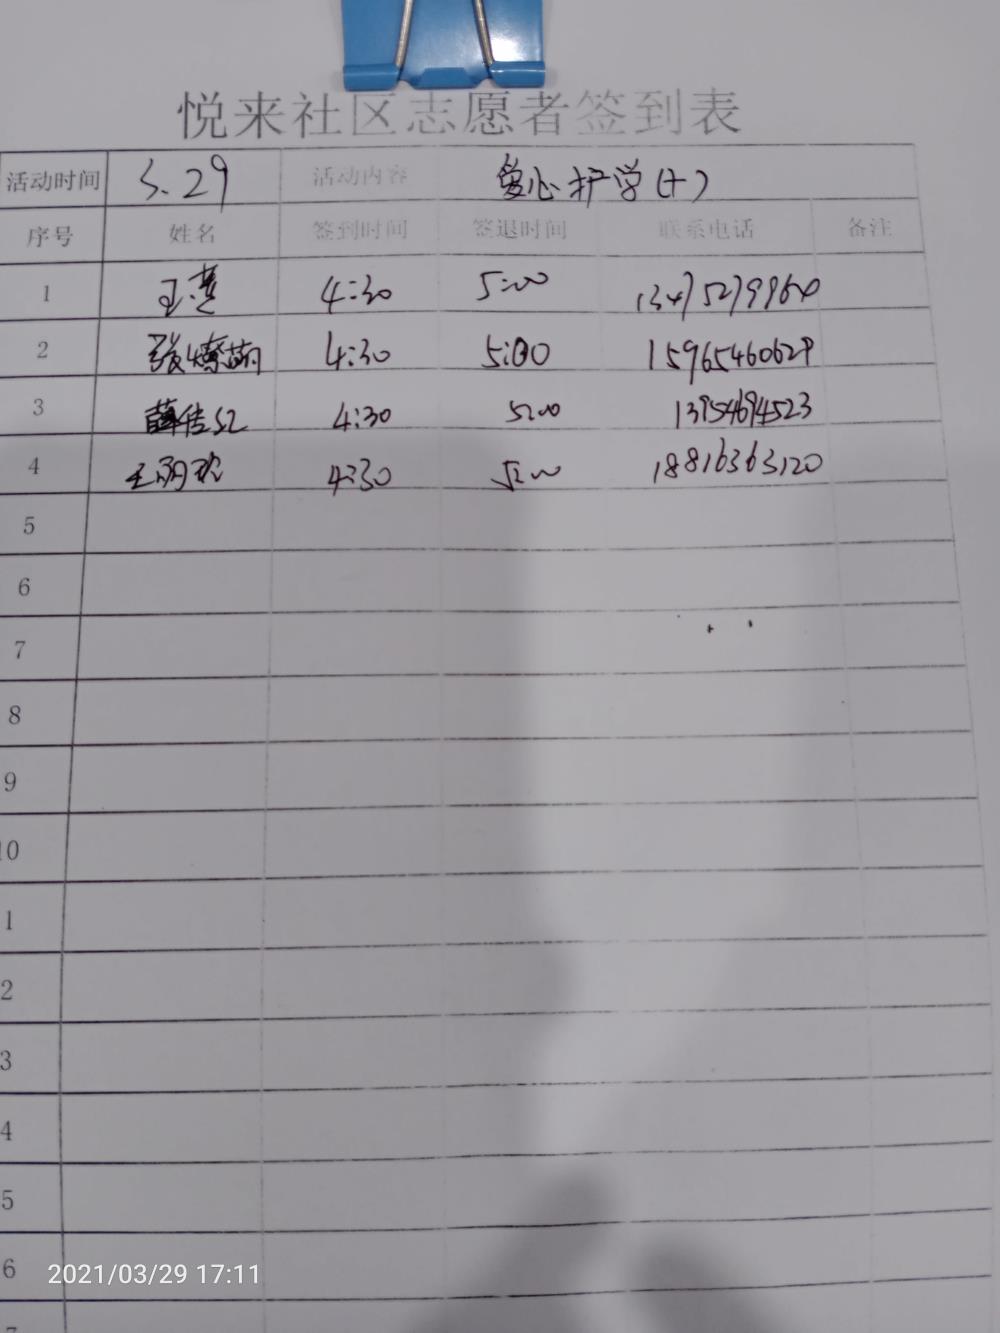 悦来社区志愿者签到表
活动时间 3.29 活动内容 爱心护学(十)
序号 姓名 签到时间 签退时间 联系电话 备注
1 王慧 4:30 5:00
2 张燎萌 4:30 5:00 15965460629
3 薛传红 4:30 5:00 13954694523
4 王丽欢 4:30 5:00 18816363120
5
6
7
8
9
10
1
2
3
4
5
6
2021/03/29 17:11